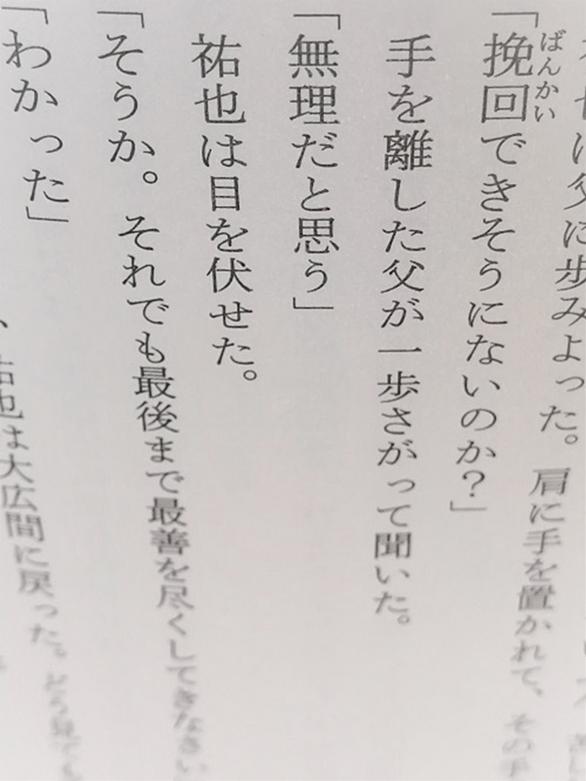 は父に歩みよった。肩に手を置かれて、その手
「挽回できそうにないのか？」
ばんかい
手を離した父が一歩さがって聞いた。
「無理だと思う」
祐也は目を伏せた。
「そうか。それでも最後まで最善を尽くしてきなさい
「わかった」
祐也は大広間に戻った。どう見ても